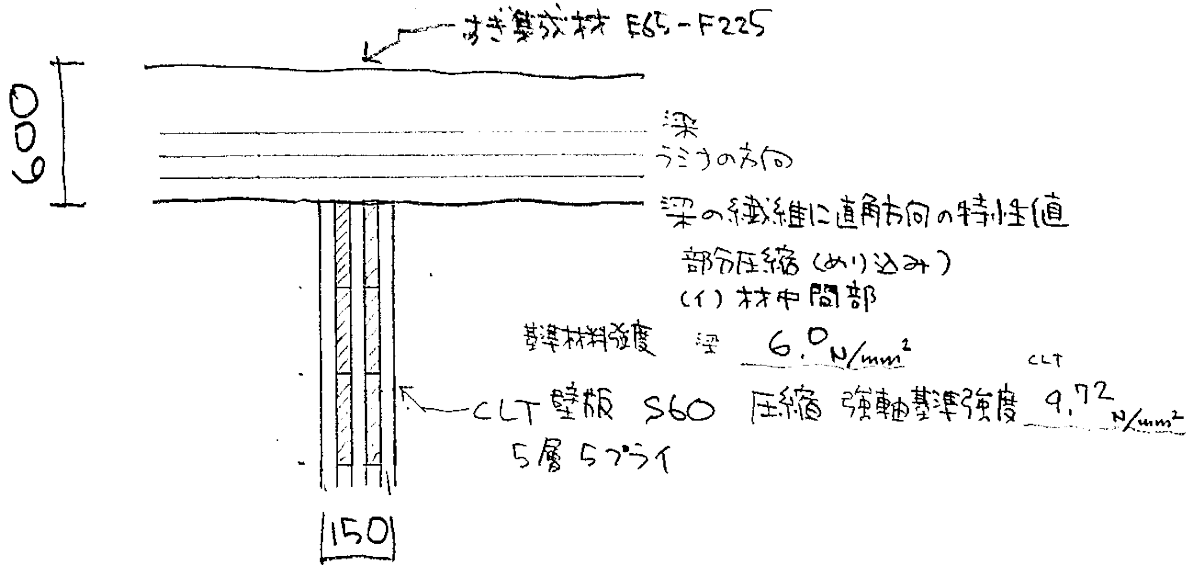 すぎ集成材 E65-F225
600
梁
ラミナの方向
梁の繊維に直角方向の特性値
部分圧縮(めり込み)
(イ)材中間部
基準材料強度 梁 6.0 N/mm²
CLT
CLT壁板 S60 圧縮 強軸基準強度 9.72 N/mm²
5層5プライ
150